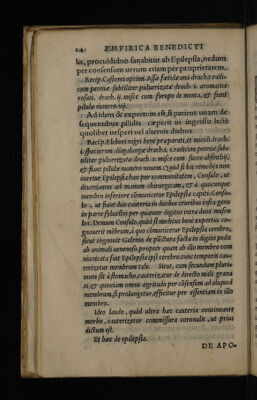 24. EMPIRICA BENEDICTI
lis, proculdubiò sanabitur ab Epilepsia, nedum
per consensum verum etiam per proprietatem.
Recip. Castorei optimi. Assæ fœtidæ ana drach. j. radi-
cum peoniæ subtiliter puluerizatæ drach. s. aromatici
rosati. drach. ij. misce cum syrupo de menta, & fiant
pilulæ numero vij.
Ad idem & expertum est, si patiens vnam de
sequentibus pilulis cœperit in ingressu lecti
quolibet vesperi vel alternis diebus.
Recip. Ellebori nigri bene præparati, et mundi drach.
s. specierum dragæ drach. s. radicum peoniæ sub-
tiliter puluerizatæ drach. s. misce cum succo absinthij,
& fiant pilulæ numero novem. Quòd si his remedijs non
curetur Epilepsia hæc per communitatem, Consulo, ut
diuertamur ad manum chirurgicam, & à quocunque
membro inferiore cõmunicetur Epilepsia capiti. Consu-
lo, ut fiant duo cauteria in duobus cruribus infra genu
in parte syluestri per quatuor digitos intra duos muscu-
los. Demum Consulo, quòd si medicus bene expertus co-
gnouerit mẽbrum, à quo cõmunicetur Epilepsia cerebro,
sicut cognouit Galenus de pũctura facta in digito pedis
ab animali venenoso, propter quam ab illo membro com
municata fuit Epilepsia ipsi cerebro, tunc temporis caute
terizetur membrum tale. Sicut, cum secundum pluri-
mum sit à stomacho, cauterizatur de directo mali grana
ti, & quoniam omnis ægritudo per cõsensum ad aliquod
membrum, si prolongetur, efficitur per essentiam in illo
membro.
Ideo laudo, quòd vltra hæc cauteria continuante
morbo, cauterizetur commissura coronalis, ut prius
dictum est.
Et hæc de epilepsia.
DE APO-